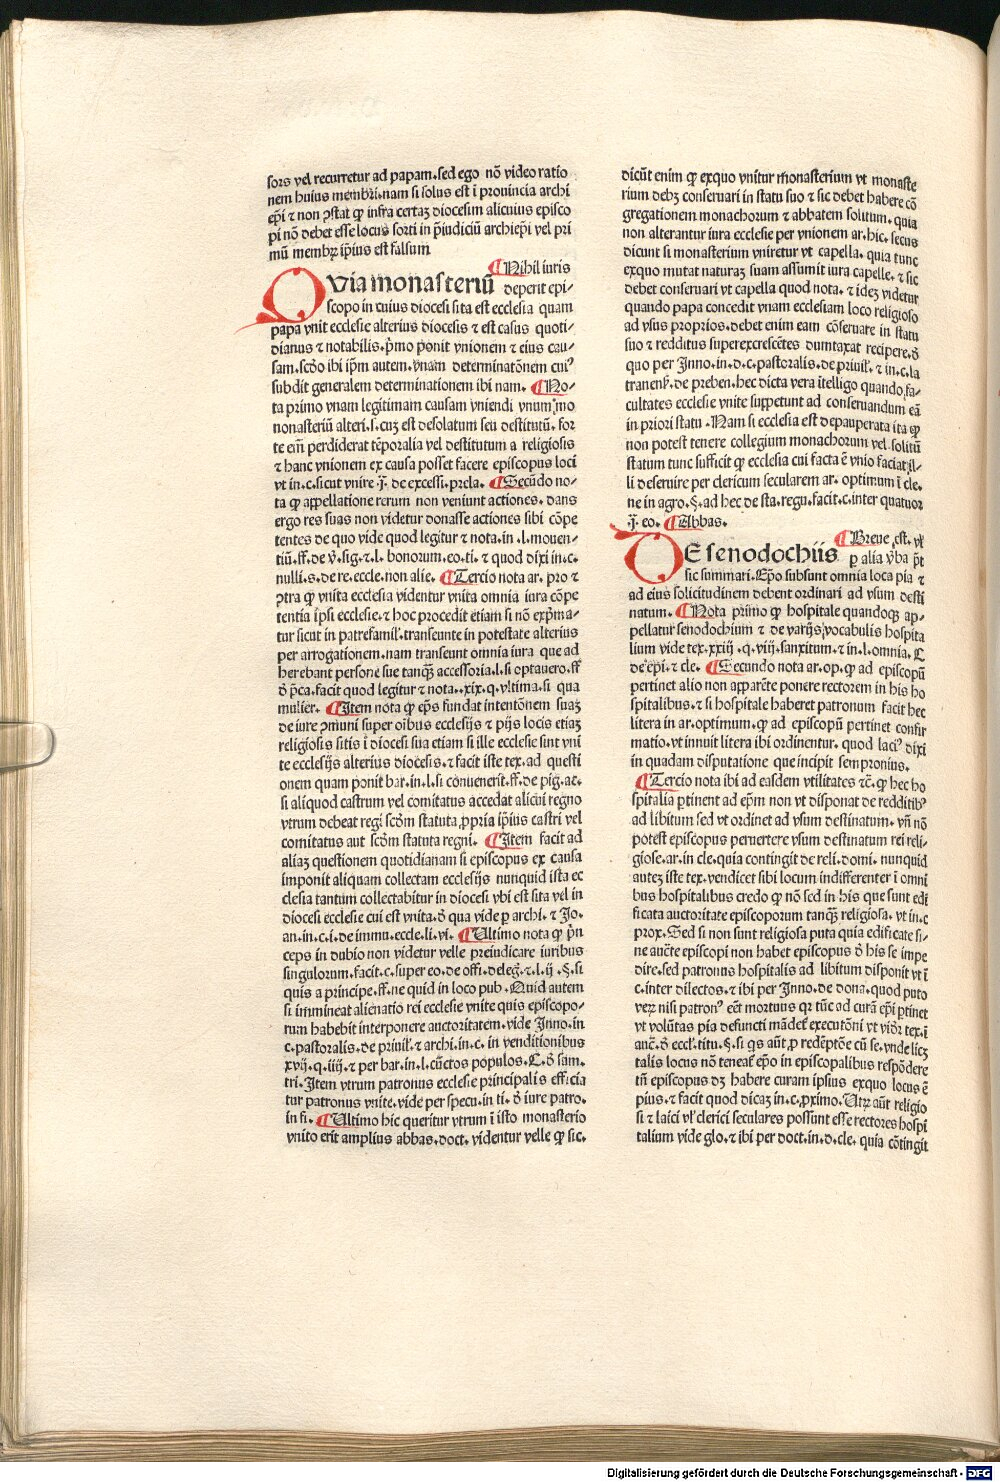 sors vel recurretur ad papam. sed ego nō video ratio
nem huius membri. nam si solus est ī prouincia archi
ep̄i ⁊ non ꝯstat ꝙ infra certaꝫ diocesim alicuius episco
pi nō debet esse locus sorti in p̄iudiciū archiep̄i vel pri
mū membꝝ ip̄ius est falsum
¶ Nihil iuris
Qvia monasteriū deperit epi-
scopo in cuius diocesi sita est ecclesia quam
papa vnit ecclesie alterius diocesis ⁊ est casus quoti-
dianus ⁊ notabilis. p̄mo ponit vnionem ⁊ eius cau-
sam. scd̄o ibi ip̄m autem. vnam determinatōnem cuiꝰ
subdit generalem determinationem ibi nam. ¶ No-
ta primo vnam legitimam causam vniendi vnum mo
nonasteriū alteri. s. cuꝫ est desolatum seu destitutū. for
te em̄ perdiderat tēporalia vel destitutum a religiosis
⁊ hanc vnionem ex causa posset facere episcopus loci
vt in. c. sicut vnire. j̄. de excessi. prela. ¶ Secūdo no-
ta ꝙ appellatione rerum non veniunt actiones. dans
ergo res suas non videtur donasse actiones sibi cōpe
tentes de quo vide quod legitur ⁊ nota. in. l. mouen-
tiū. ff. de v̄. sig. ⁊. l. bonorum. eo. ti. ⁊ quod dixi in. c.
nulli. s. de re. eccle. non alie. ¶ Tercio nota ar. pro ⁊
ꝯtra ꝙ vnita ecclesia videntur vnita omnia iura cōpe
tentia ip̄si ecclesie. ⁊ hoc procedit etiam si nō exp̄ma-
tur sicut in patrefamil'. transeunte in potestate alterius
per arrogationem. nam transeunt omnia iura que ad
herebant persone sue tanqꝫ accessoria. l. si optauero. ff
ō p̄ca. facit quod legitur ⁊ nota. xix. q. vltima. si qua
mulier. ¶ Item nota ꝙ ep̄s fundat intentōnem suaꝫ
de iure ꝯmuni super oībus ecclesijs ⁊ pijs locis etiaꝫ
religiosis sitis ī diocesi sua etiam si ille ecclesie sint vni
te ecclesijs alterius diocesis. ⁊ facit iste tex. ad questi
onem quam ponit bar. in. l. si conuenerit. ff. de pig. ac.
si aliquod castrum vel comitatus accedat alicui regno
vtrum debeat regi scd̄m statuta ꝓpria ip̄ius castri vel
comitatus aut scd̄m statuta regni. ¶ Item facit ad
aliaꝫ questionem quotidianam si episcopus ex causa
imponit aliquam collectam ecclesijs nunquid ista ec
clesia tantum collectabitur in diocesi vbi est sita vel in
diocesi ecclesie cui est vnita. ō qua vide ꝑ archi. ⁊ Jo.
an. in. c. i. de immu. eccle. li. vi. ¶ Ultimo nota ꝙ p̄n
ceps in dubio non videtur velle preiudicare iuribus
singulorum. facit. c. super eo. de offi. deleg̃. ⁊. l. ij. §. si
quis a principe. ff. ne quid in loco pub. Quid autem
si immineat alienatio rei ecclesie vnite quis episcopo-
rum habebit interponere auctoritatem. vide Inno. in
c. pastoralis. de priuil'. ⁊ archi. in. c. in venditionibus
xvij. q. iiij. ⁊ per bar. in. l. cūctos populos. C. ō sum.
tri. Item vtrum patronus ecclesie principalis efficia
tur patronus vnite. vide per specu. in ti. ō iure patro.
in fi. ¶ Ultimo hic queritur vtrum ī isto monasterio
vnito erit amplius abbas. doct. videntur velle ꝙ sic.
dicūt enim ꝙ exquo vnitur monasterium vt monaste
rium debꝫ conseruari in statu suo ⁊ sic debet habere cō
gregationem monachorum ⁊ abbatem solitum. quia
non alterantur iura ecclesie per vnionem ar. hic. secus
dicunt si monasterium vniretur vt capella. quia tunc
exquo mutat naturaꝫ suam assumit iura capelle. ⁊ sic
debet conseruari vt capella quod nota. ⁊ ideꝫ videtur
quando papa concedit vnam ecclesiam loco religioso
ad vsus proprios. debet enim eam cōseruare in statu
suo ⁊ redditus superexcrescētes dumtaxat recipere. ō
quo per Inno. in. d. c. pastoralis. de priuil'. ⁊ in. c. la
tranen̄. de preben. hec dicta vera ītelligo quando fa-
cultates ecclesie vnite suppetunt ad conseruandum eā
in priori statu. Nam si ecclesia est depauperata ita ꝙ
non potest tenere collegium monachorum vel solitū
statum tunc sufficit ꝙ ecclesia cui facta ē vnio faciat il-
li deseruire per clericum secularem ar. optimum ī cle.
ne in agro. §. ad hec de sta. regu. facit. c. inter quatuor
j̄. eo. ¶ Abbas.
¶ Breue est. vl'
DE senodochiis ꝑ alia v̄ba p̄t
sic summari. Ep̄o subsunt omnia loca pia ⁊
ad eius solicitudinem debent ordinari ad vsum desti
natum. ¶ Nota primo ꝙ hospitale quandoqꝫ ap-
pellatur senodochium ⁊ de varijs vocabulis hospita
lium vide tex. xxiij. q. viij. sanxitum. ⁊ in. l. omnia. C
de ep̄i. ⁊ cle. ¶ Secundo nota ar. op. ꝙ ad episcopū
pertinet alio non apparēte ponere rectorem in his ho
spitalibus. ⁊ si hospitale haberet patronum facit hec
litera in ar. optimum. ꝙ ad episcopū pertinet confir
matio. vt innuit litera ibi ordinentur. quod laciꝰ dixi
in quadam disputatione que incipit sempronius.
¶ Tercio nota ibi ad easdem vtilitates ⁊c̄. ꝙ hec ho
spitalia ꝑtinent ad ep̄m non vt disponat de redditibꝰ
ad libitum sed vt ordinet ad vsum destinatum. vn̄ nō
potest episcopus peruertere vsum destinatum rei reli-
giose. ar. in cle. quia contingit de reli. domi. nunquid
auteꝫ iste tex. vendicet sibi locum indifferenter ī omni
bus hospitalibus credo ꝙ nō sed in his que sunt edi
ficata auctoritate episcoporum tanqꝫ religiosa. vt in. c
prox. Sed si non sunt religiosa puta quia edificate si-
ne auc̄te episcopi non habet episcopus ō his se impe
dire. sed patronus hospitalis ad libitum disponit vt ī
c. inter dilectos. ⁊ ibi per Inno. de dona. quod puto
veꝝ nisi patronꝰ eēt mortuus qꝛ tūc ad curā ep̄i ꝑtinet
vt volūtas pia defuncti mādet̄ executōni vt vid̄r tex. ī
auc̄. ō eccl'. titu. §. si qs aūt ꝓ redēptōe cū se. vnde licꝫ
talis locus nō teneat̄ ep̄o in episcopalibus respōdere
tn̄ episcopus dꝫ habere curam ipsius exquo locus ē
pius. ⁊ facit quod dicaꝫ in. c. ꝓximo. Utꝝ aūt religio
si ⁊ laici vl' clerici seculares possunt esse rectores hospi
talium vide glo. ⁊ ibi per doct. in. d. cle. quia cōtingit
Digitalisierung gefördert durch die Deutsche Forschungsgemeinschaft - DFG